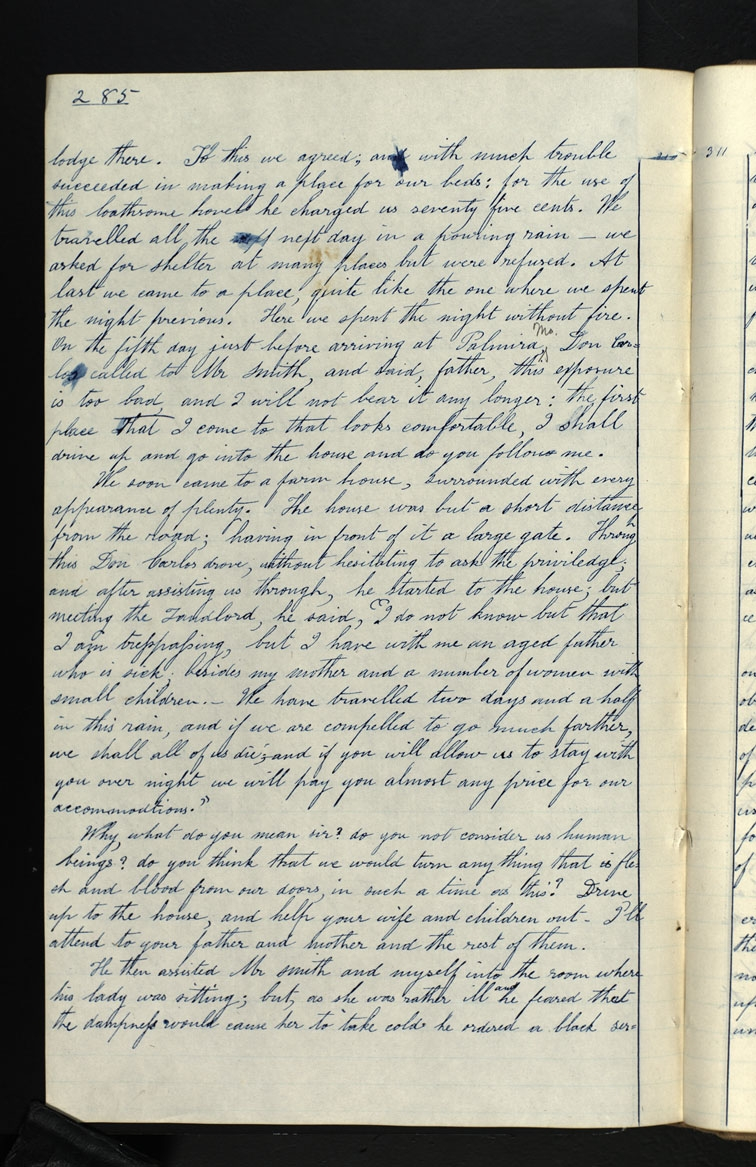 285
lodge there. To this we agreed; and with much trouble
succeeded in making a place for our beds; for the use of
this loathsome hovel he charged us seventy five cents. We
travelled all, the next day in a pouring rain — we
asked for shelter at many places but were refused. At
last we came to a place, quite like the one where we spent
the night previous. Here we spent the night without fire.
Mo.
On the fifth day just before arriving at Palmira, Don Car=
los called to Mr Smith, and said, father, this exposure
is too bad, and I will not bear it any longer; the first
place that I come to that looks comfortable, I shall
drive up and go into the house and do you follow me.
We soon came to a farm house, surrounded with every
appearance of plenty. The house was but a short distance
from the road; having in front of it a large gate. Through
this Don Carlos drove, without hesitating to ask the priviledge;
and after assisting us through, he started to the house; but
meeting the Landlord, he said, "I do not know but that
I am tresspassing, but I have with me an aged father
who is sick; besides my mother and a number of women with
small children. — We have travelled two days and a half
in this rain, and if we are compelled to go much farther,
we shall all of us die; and if you will allow us to stay with
you over night we will pay you almost any price for our
accommodtions."
Why, what do you mean sir? do you not consider us human
beings? do you think that we would turn any thing that is fle=
sh and blood from our doors, in such a time as this? Drive
up to the house, and help your wife and children out - I'll
attend to your father and mother and the rest of them.
He then assisted Mr Smith and myself into the room where
his lady was sitting; but, as she was rather ill and he feared that
the dampness would cause her to take cold he ordered a black ser=
311